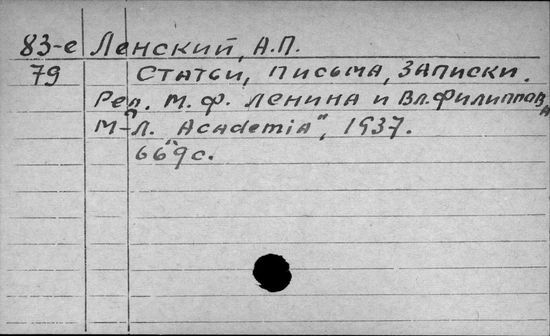 83-е Ленский, А.П.
79 Статьи, письма, записки.
Ред. М.Ф. Ленина и Вл.Филиппова
М-Л. "Academia", 1937.
669 с.